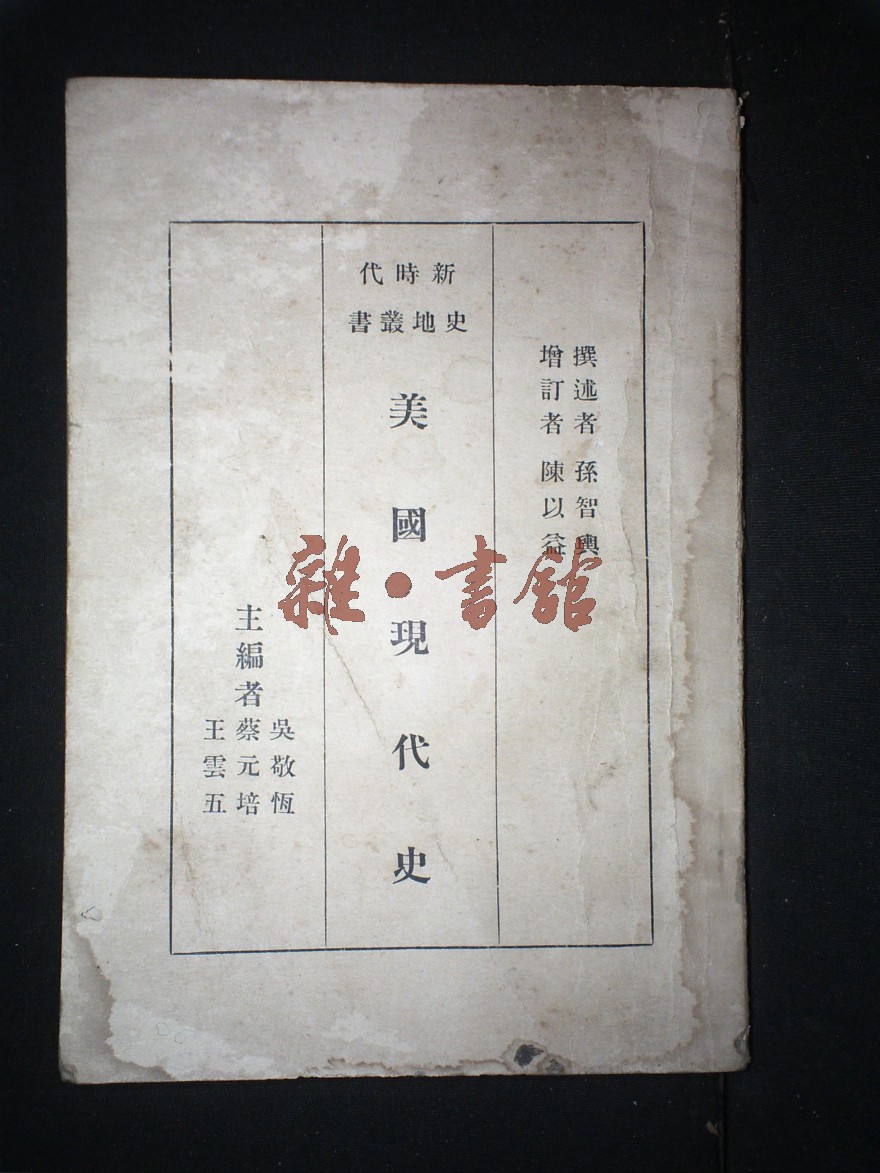 撰述者 孫智輿
增訂者 陳以益
新時代
史地叢書
美國現代史
主編者
吳敬恆
蔡元培
王雲五
雜·書館